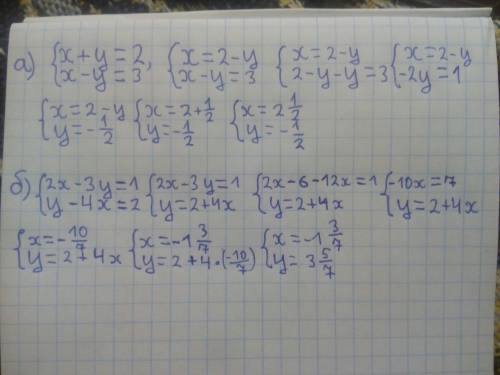 а) {x+y=2, x-y=3, {x=2-y x-y=3 {x=2-y 2-y-y=3 {x=2-y -2y=1
{x=2-y y=-1/2 {x=2+1/2 y=-1/2 {x=2 1/2 y=-1/2
б) {2x-3y=1 y-4x=2 {2x-3y=1 y=2+4x {2x-6-12x=1 y=2+4x {-10x=7 y=2+4x
{x=-10/7 y=2+4x {x=-1 3/7 y=2+4·(-10/7) {x=-1 3/7 y=3 5/7